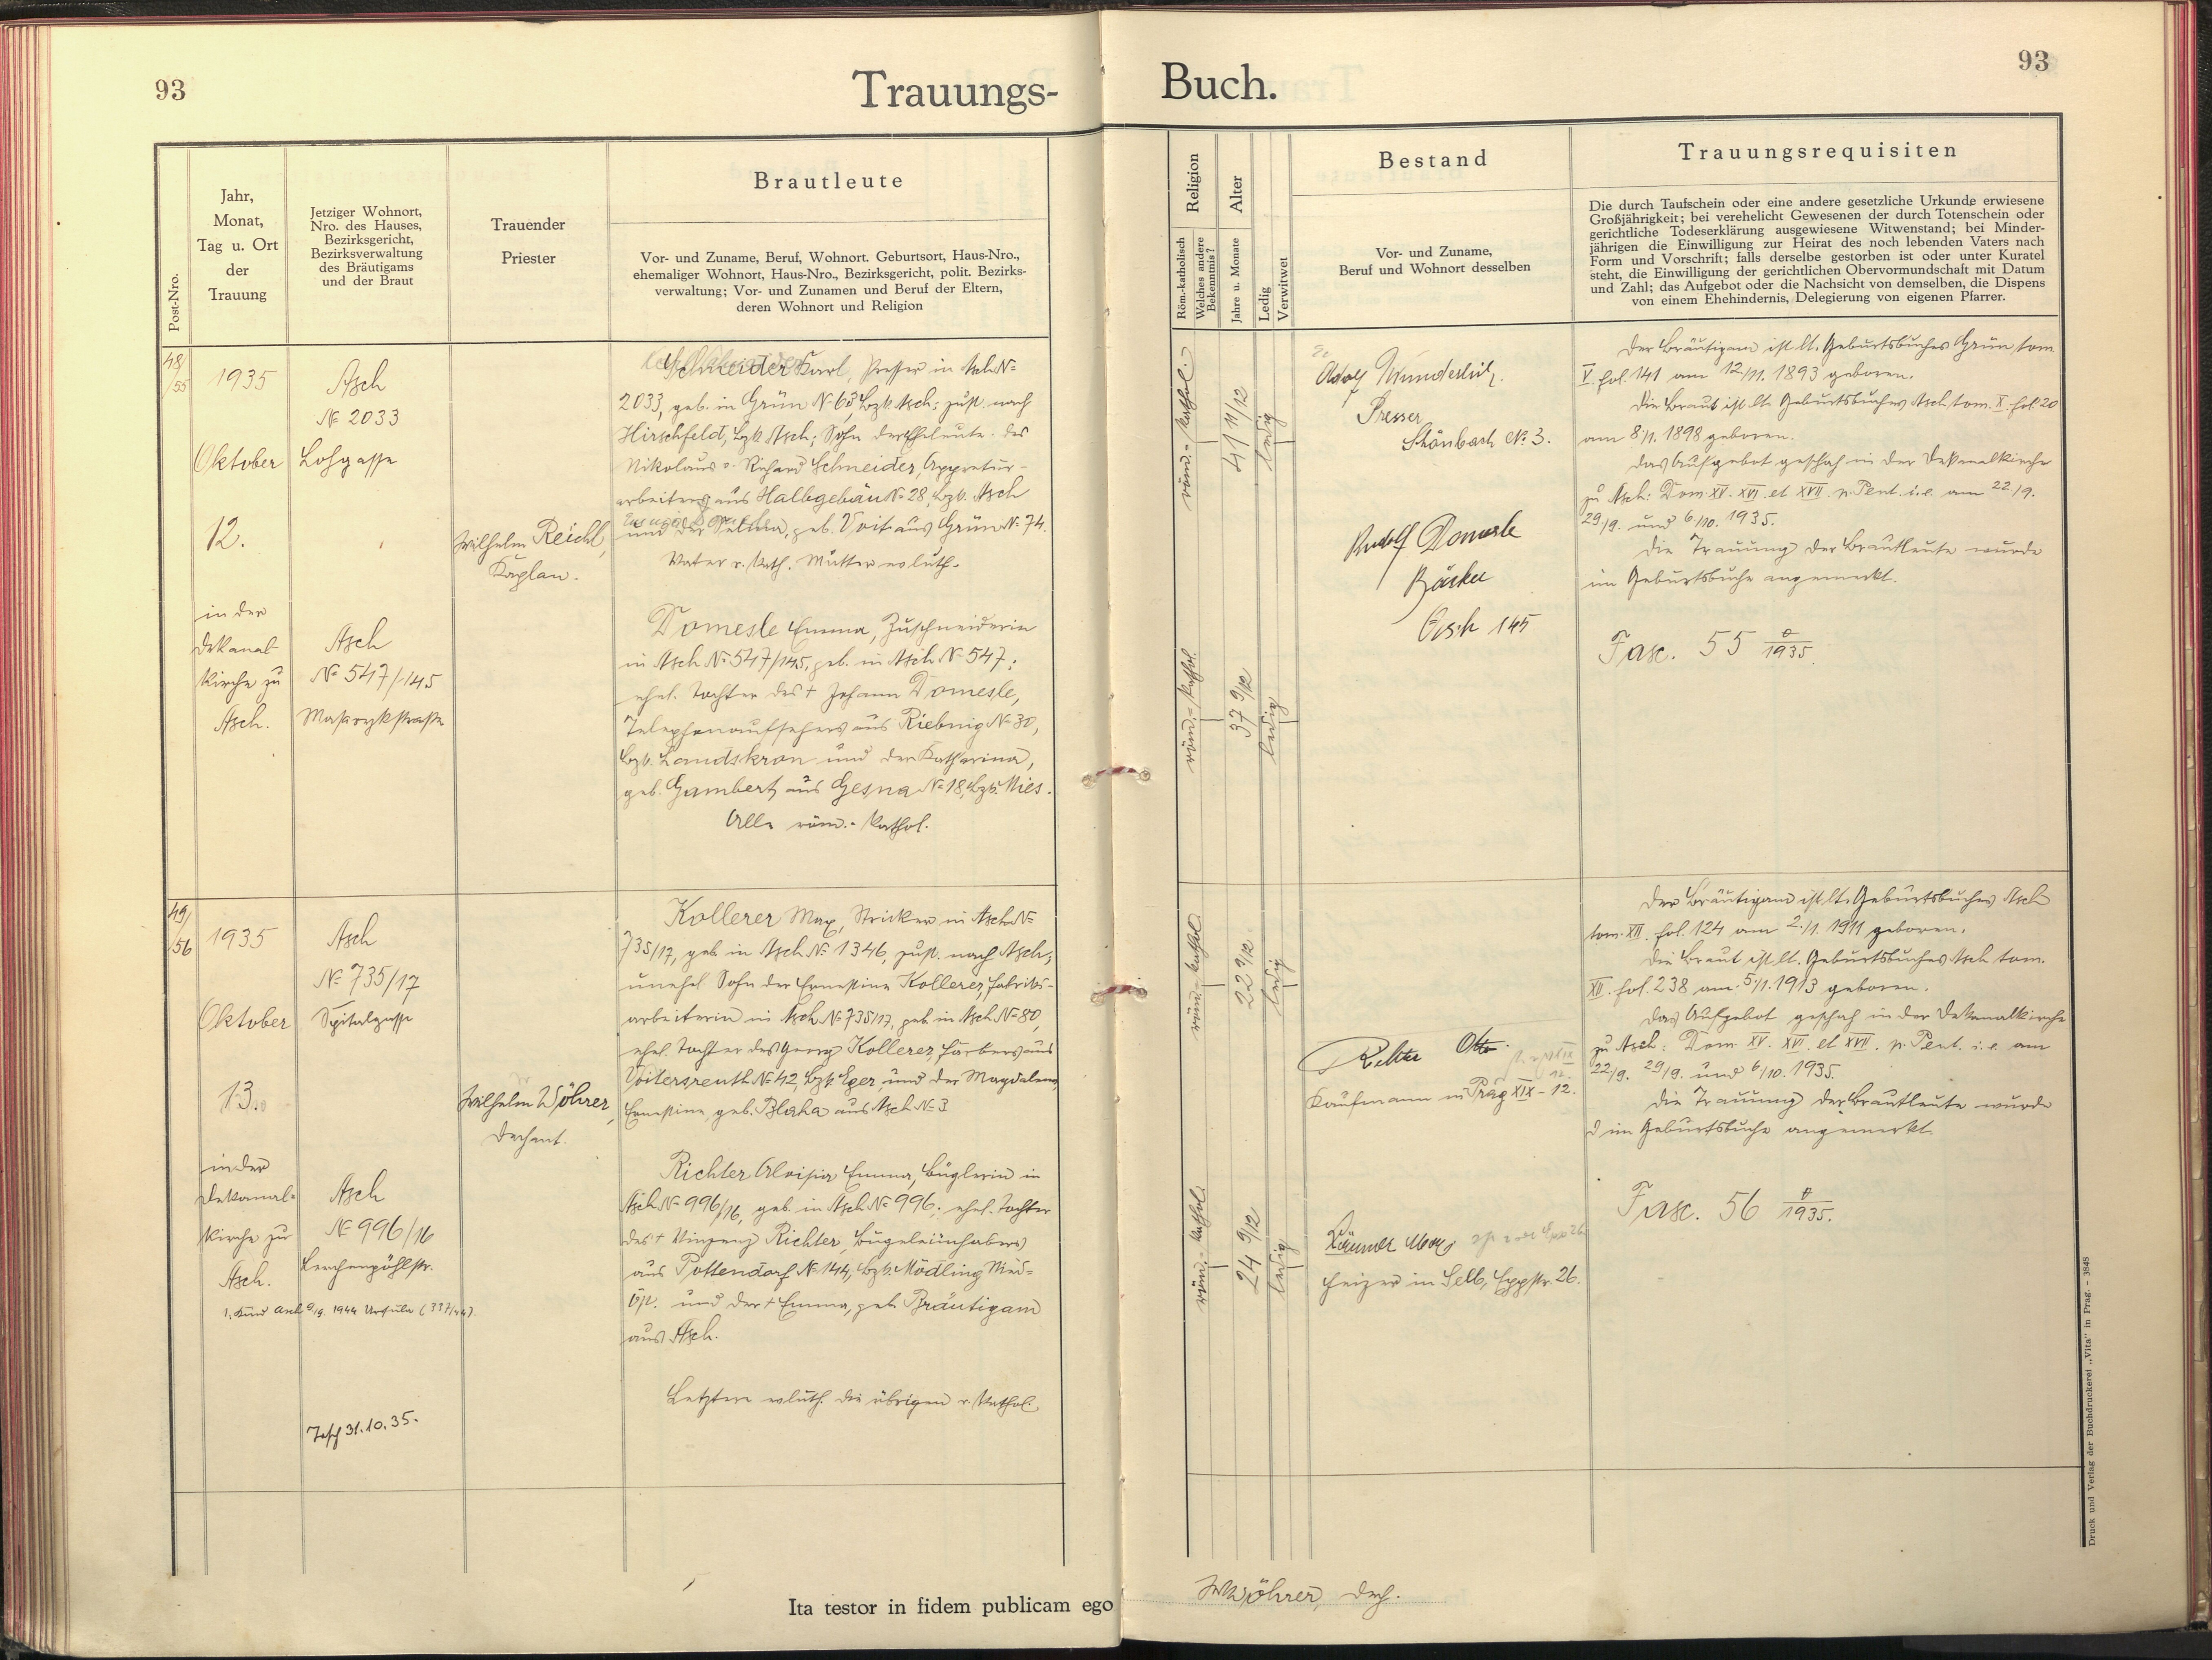 93
Trauungs-
Buch.
93
Post-Nro.
Jahr,
Monat,
Tag u. Ort
der
Trauung
Jetziger Wohnort,
Nro. des Hauses,
Bezirksgericht,
Bezirksverwaltung
des Bräutigams
und der Braut
Trauender
Priester
Brautleute
Vor- und Zuname, Beruf, Wohnort. Geburtsort, Haus-Nro.,
ehemaliger Wohnort, Haus-Nro., Bezirksgericht, polit. Bezirks-
verwaltung; Vor- und Zunamen und Beruf der Eltern,
deren Wohnort und Religion
Religion
Röm.-katholisch
Welches andere
Bekenntnis?
Alter
Jahre u. Monate
Ledig
Verwitwet
Bestand
Vor- und Zuname,
Beruf und Wohnort desselben
Trauungsrequisiten
Die durch Taufschein oder eine andere gesetzliche Urkunde erwiesene
Großjährigkeit; bei verehelicht Gewesenen der durch Totenschein oder
gerichtliche Todeserklärung ausgewiesene Witwenstand; bei Minder-
jährigen die Einwilligung zur Heirat des noch lebenden Vaters nach
Form und Vorschrift; falls derselbe gestorben ist oder unter Kuratel
steht, die Einwilligung der gerichtlichen Obervormundschaft mit Datum
und Zahl; das Aufgebot oder die Nachsicht von demselben, die Dispens
von einem Ehehindernis, Delegierung von eigenen Pfarrer.
48/
/55
1935
Oktober
12.
in der
Dekanal-
Kirche zu
Asch.
Asch
№ 2033
Lohgasse
Asch
№ 547/145
Masarykstraße
Wilhelm Reichl,
Kaplan.
Schneider Karl, Presser in Asch №
2033, geb. in Grün № 63 Bzk. Asch; zust. nach
Hirschfeld, Bzk. Asch; Sohn der Eheleute des
Nikolaus Richard Schneider, Appretur-
arbeiters aus Halbgebäu № 28, Bzk. Asch
und der Selma, geb. Voit aus Grün № 74.
Vater r. kath. Mutter ev. luth.
Domesle Emma, Zuschneiderin
in Asch № 547/145, geb. in Asch № 547;
ehel. Tochter des † Johann Domesle,
Telephonaufsehers aus Riebnig № 30,
Bzk. Landskron und der Katharina,
geb. Gambert aus Gesna № 18, Bzk. Mies.
Alle röm.-kathol.
röm.-kathol.
41 11/12
ledig
röm.-kathol.
37 9/12
ledig
Adolf Wunderlich.
Presser
Schönbach № 3.
Rudolf Domesle
Bäcker
Asch 145
Der Bräutigam ist lt. Geburtsbuches Grün, tom.
V. fol. 141 am 12./11. 1893 geboren.
Die Braut ist lt. Geburtsbuches Asch tom. X. fol. 20
am 8./1. 1898 geboren.
Das Aufgebot geschah in der Dekanalkirche
zu Asch: Dom. XV. XVI. et XVII. p. Pent. i.e. am 22./9.
29./9. und 6./10. 1935.
Die Trauung der Brautleute wurde
im Geburtsbuche angemerkt.
Fasc. 55 1935.
49/
/56
1935
Oktober
13.
in der
Dekanal-
Kirche zu
Asch.
Asch
№ 735/17
Spitalgasse
Asch
№ 996/16
Lerchenpöhlstr.
1. Kind Asch 9./9. 1944 Ursula (337/44)
31.10.35.
Wilhelm Wöhrer,
Dechant.
Kollerer Max, Stricker in Asch №
735/17, geb. in Asch № 1346, zust. nach Asch,
unehel. Sohn der Ernestine Kollerer, Fabriks-
arbeiterin in Asch № 735/17, geb. in Asch № 80,
ehel. Tochter des Georg Kollerer, Färbers aus
Voitersreuth № 42, Bzk. Eger, und der Magdalena
Ernestine, geb. Blaha aus Asch № 3
Richter Aloisia Emma, Büglerin in
Asch № 996/16, geb. in Asch № 996; ehel. Tochter
des † Vinzenz Richter, Bügeleiinhabers
aus Pottendorf № 144, Bzk. Mödling Nied-
Öst. und der † Emma, geb. Bräutigam
aus Asch.
Letztere ev. luth. die übrigen r. kathol.
röm.-kathol.
22 9/12
ledig
röm.-kathol.
24 9/12
ledig
Richter Otto.
Kaufmann in Prag XIX - 12.
Max
Heizer in Selb, Eggstr. 26.
Der Bräutigam ist lt. Geburtsbuches Asch
tom. XII. fol. 124 am 2./1. 1911 geboren.
Die Braut ist lt. Geburtsbuches Asch tom.
XII. fol. 238 am 5./1. 1913 geboren.
Das Aufgebot geschah in der Dekanalkirche
zu Asch: Dom. XV. XVI. et XVII. p. Pent. i.e. am
22./9. 29./9. und 6./10. 1935.
Die Trauung der Brautleute wurde
im Geburtsbuche angemerkt.
Fasc. 56 1935.
Ita testor in fidem publicam ego
Wöhrer, Dech.
Druck und Verlag der Buchdruckerei „Vita" in Prag. - 3848